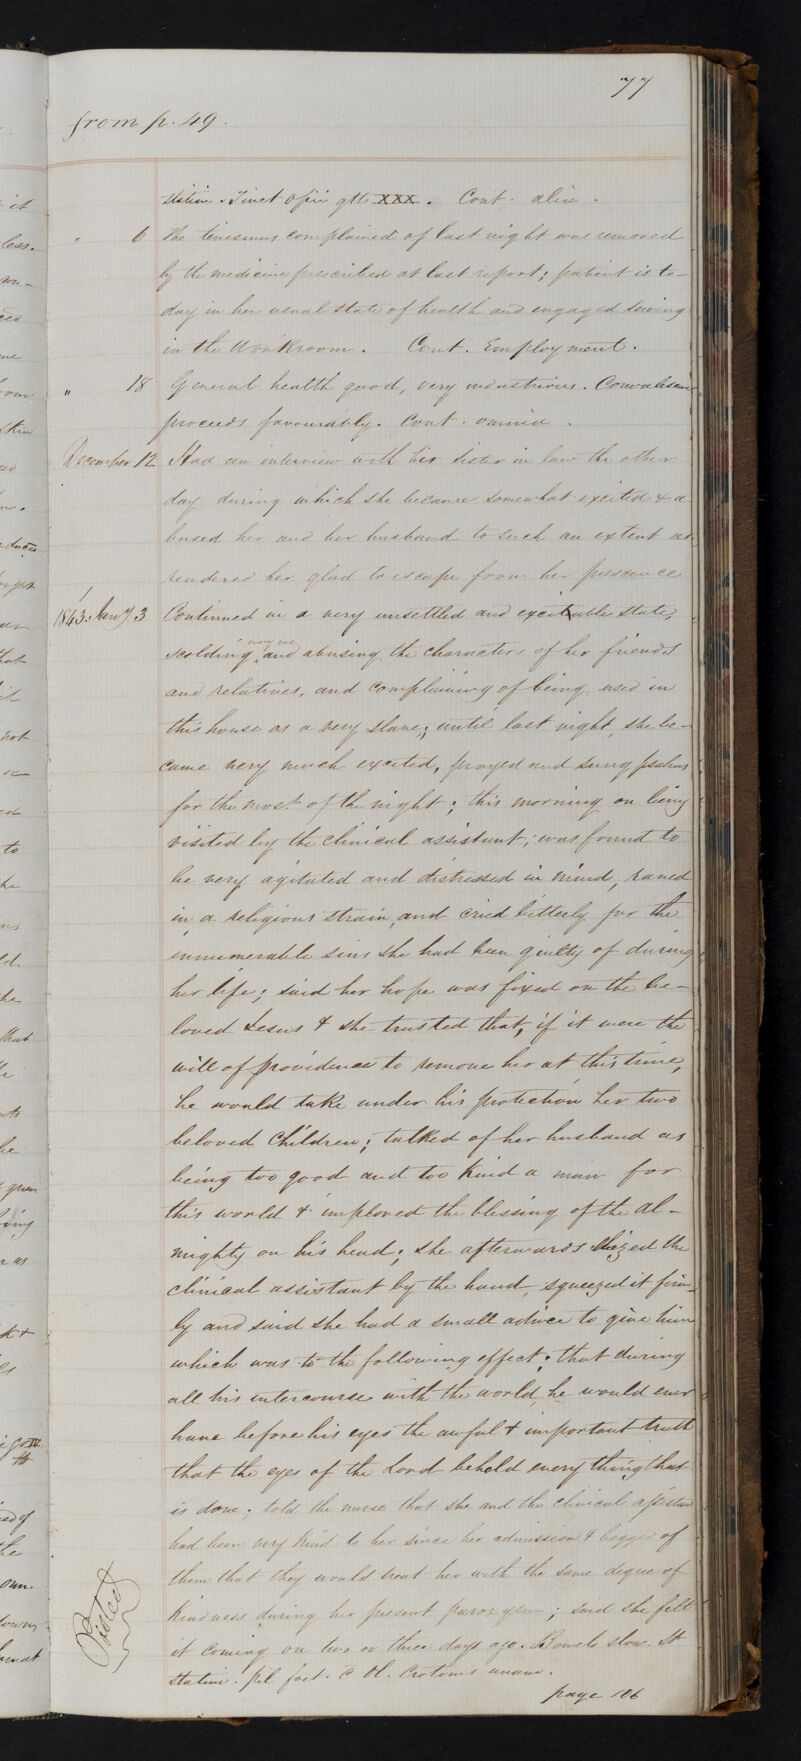 77
from p. 49.
statim. Tinct Opii gtts XXX. Cont. alia.
" 6 The tenesmus complained of last night was removed
by the medicine prescribed at last report; patient is to-
day in her usual state of health and engaged sewing
in the Workroom. Cont. Employment.
" 18 General health good, very industrious. Convalescence
proceeds favourably. Cont. omnia.
December 12 Had an interview with her sister in law the other
day during which she became somewhat excited & a
bused her and her husband to such an extent as
rendered her glad to escape from her prescence
1843. Jany 3 Continued in a very unsettled and excitable state,
scolding and abusing the characters of her friends
and relatives, and complaining of being used in
this house as a very slave; until last night, she be-
came very much excited, prayed and sung psalms
for the most of the night; this morning on being
visited by the clinical assistant; was found to
be very agitated and distressed in mind, raved
in a religious strain, and cried bitterly for the
innumerable sins she had been guilty of during
her life; said her hope was fixed on the be-
loved Jesus & she trusted that, if it were the
will of providence to remove her at this time,
he would take under his protection her two
beloved Children; talked of her husband as
being too good and too kind a man for
this world & implored the blessing of the Al-
mighty on his head; she afterwards seized the
clinical assistant by the hand, squeezed it firm-
ly and said she had a small advice to give him
which was to the following effect; that during
all his intercourse with the world, he would ever
have before his eyes the awful & important truth
that the eyes of the Lord beheld every thing that
is done; told the nurse that she and the clinical assistan
had been very kind to her since her admission & begged of
them that they would treat her with the same degree of
kindness during her present paroxysm; said she felt
it coming on two or three days ago. Bowels slow. St
statim. pil fort. c Ol. Crotonis unam.
page 106